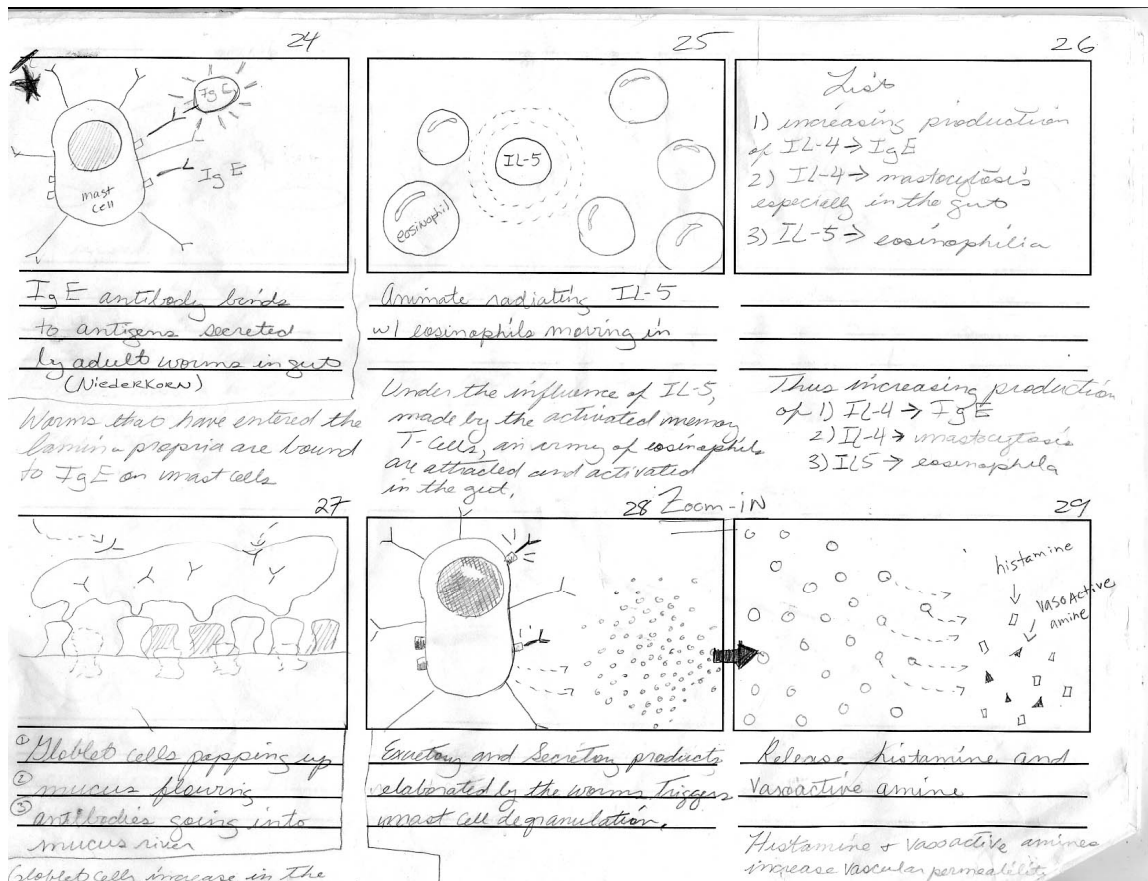 24
IgE
IgE
mast
cell
IgE antibody binds
to antigens secreted
by adult worms in gut
(NIEDERKORN)
Worms that have entered the
lamina propria are bound
to IgE on mast cells
25
IL-5
eosinophil
Animate radiating IL-5
w/ eosinophils moving in
Under the influence of IL-5,
made by the activated memory
T-Cells, an army of eosinophils
are attracted and activated
in the gut.
26
List
1) increasing production
of IL-4 → IgE
2) IL-4 → mastocytosis
especially in the gut
3) IL-5 → eosinophilia
Thus increasing production
of 1) IL-4 → IgE
2) IL-4 → mastocytosis
3) IL5 → eosinophila
27
① Globlet cells popping up
② mucus flowing
③ antibodies going into
mucus river
Globlet cells increase in the
28 Zoom-iN
Excetory and Secretory products
elaborated by the worms Triggers
mast cell degranulation.
29
histamine
vasoActive
amine
Release histamine and
Vasoactive amine
Histamine + vasoactive amines
increase vascular permeability